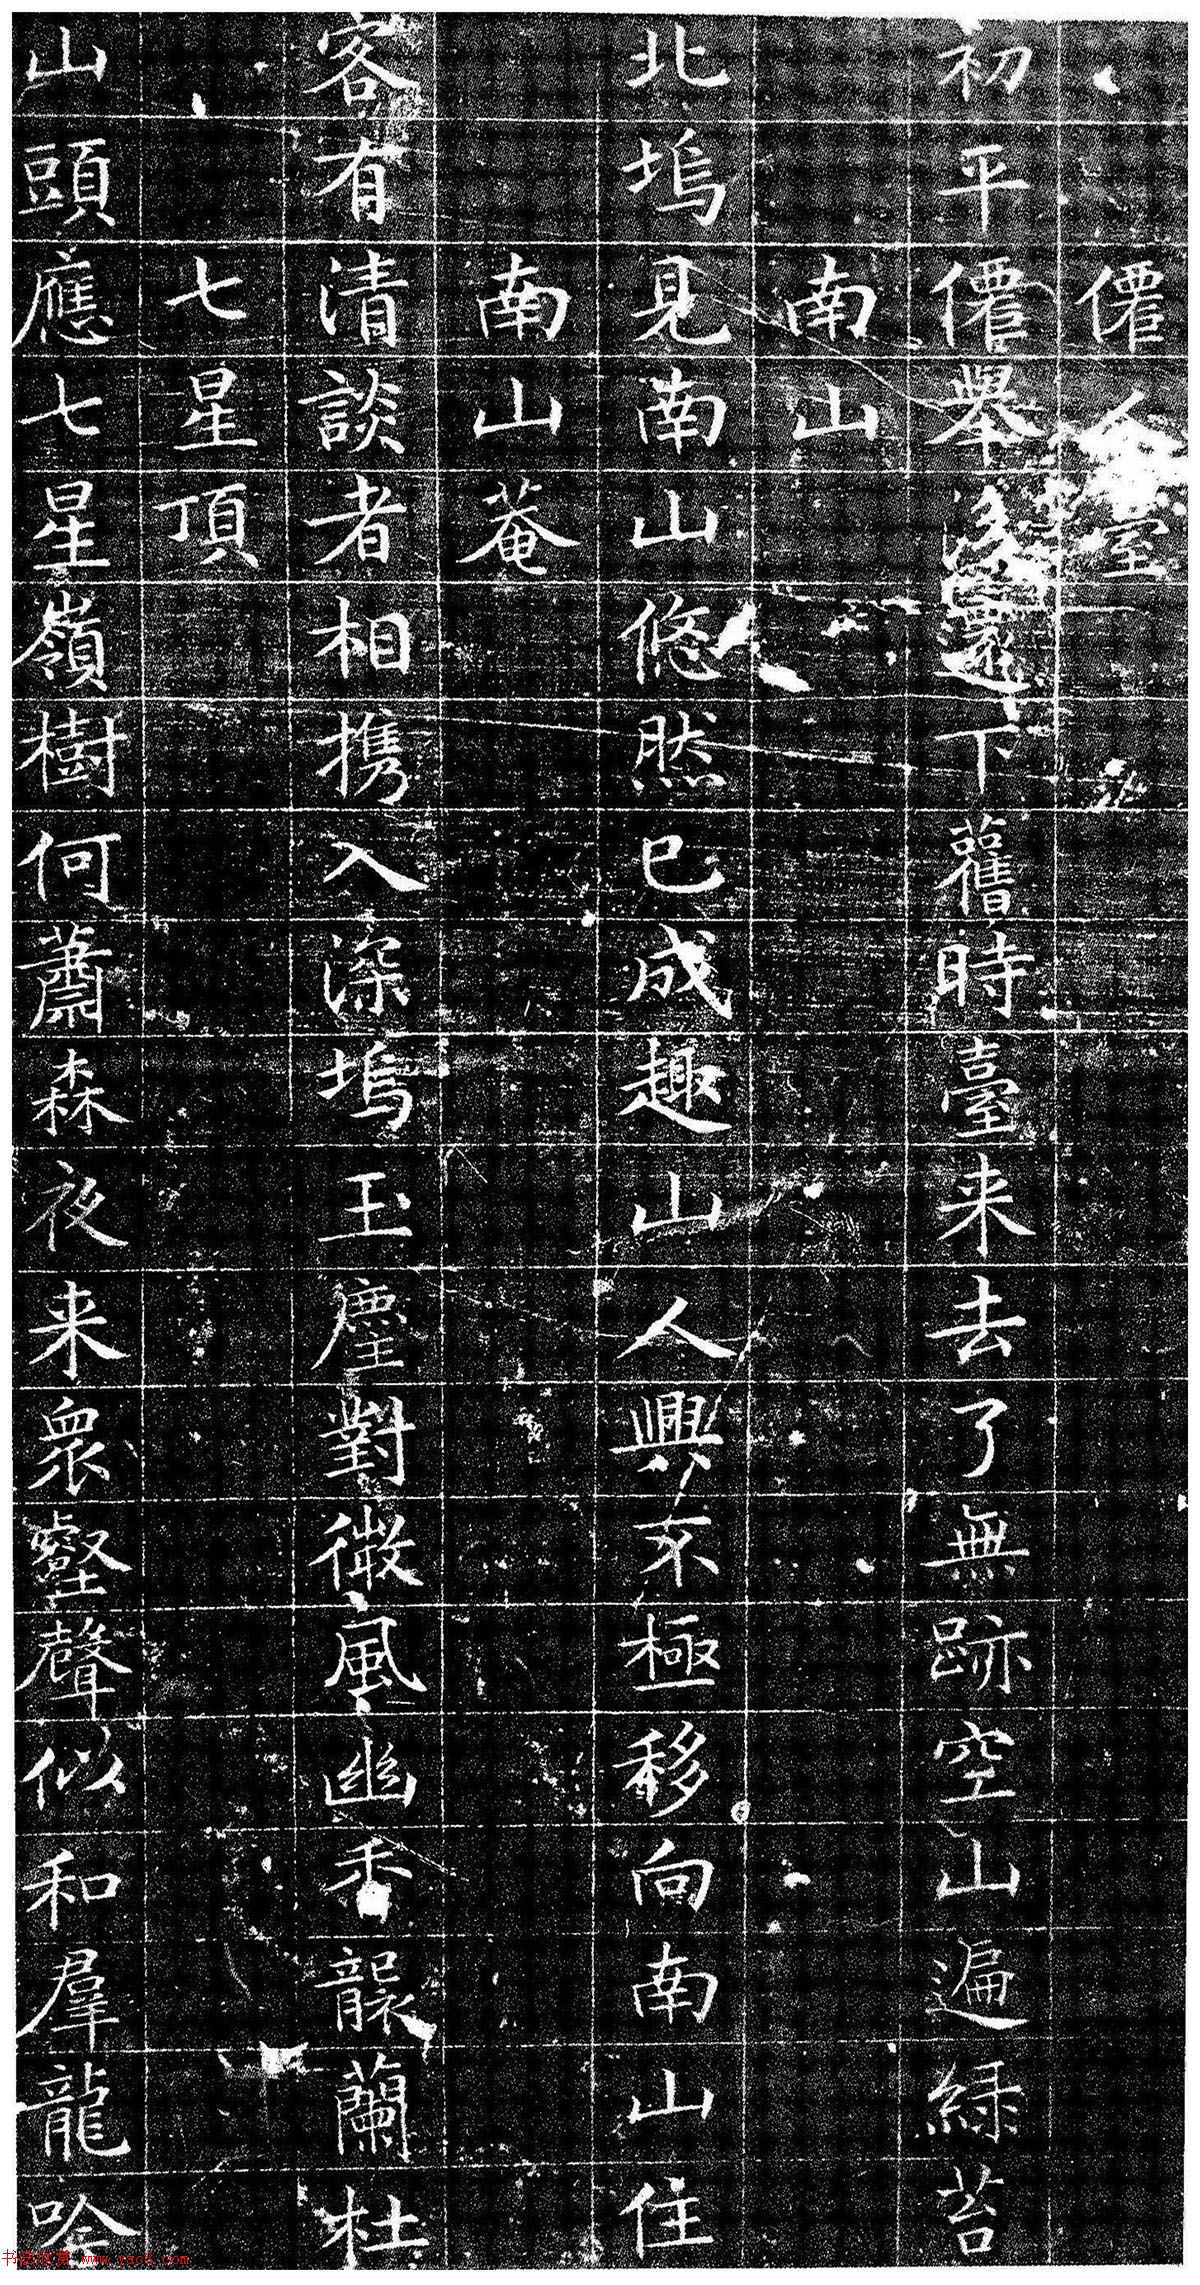 僊人臺
初平僊舉後還下舊時臺来去了無跡空山遍綠苔
南山
北塢見南山悠然已成趣山人興不極移向南山住
南山菴
客有清談者相携入深塢玉麈對微風幽香襲蘭杜
七星頂
山頭應七星嶺樹何蕭森夜来衆壑聲似和羣龍吟
书法欣赏 www.yac8.com